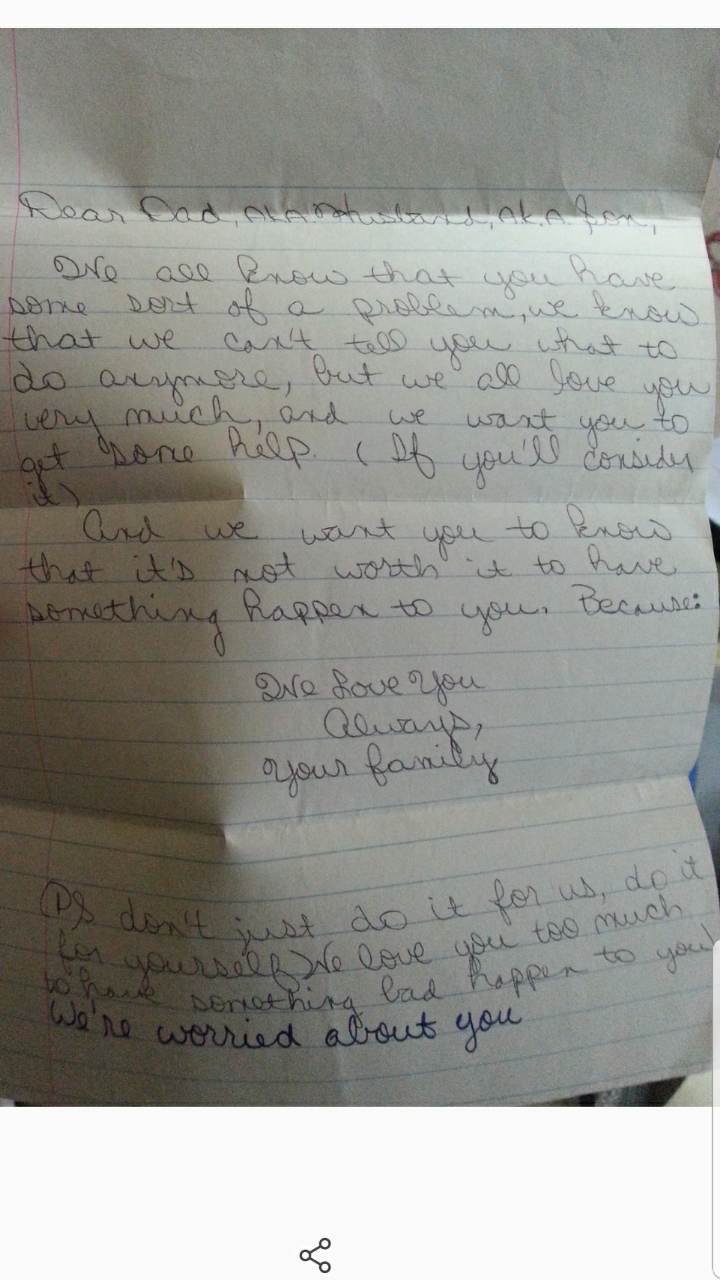 Dear Dad, A.K.A. Husband, A.K.A. Son,
We all know that you have
some sort of a problem, we know
that we can't tell you what to
do anymore, but we all love you
very much, and we want you to
get some help. (If you'll consider
it)
And we want you to know
that it's not worth it to have
something happen to you. Because:
We Love You
Always,
Your family
PS don't just do it for us, do it
for yourself, We love you too much
to have something bad happen to you!
We're worried about you